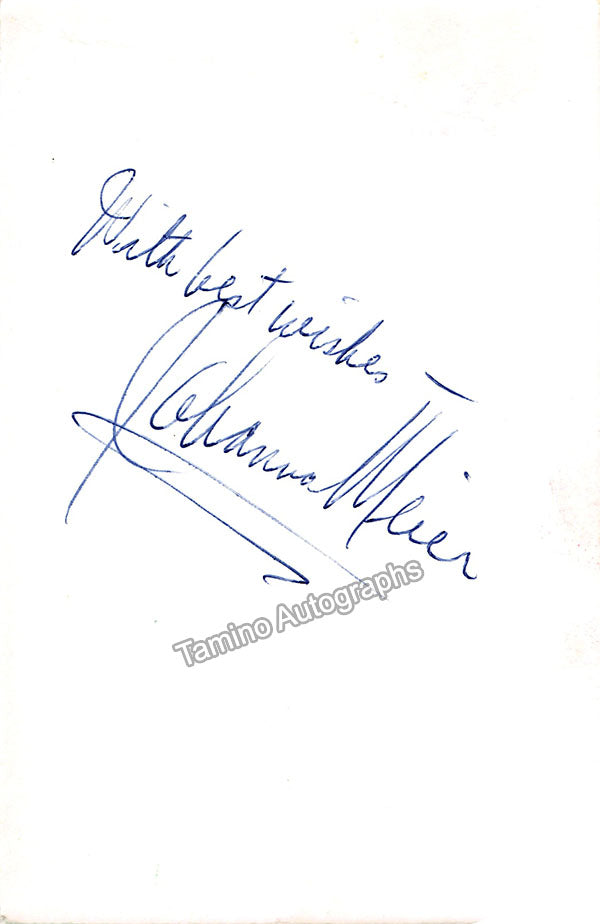 With best wishes –
Johanna Meier
Tamino Autographs